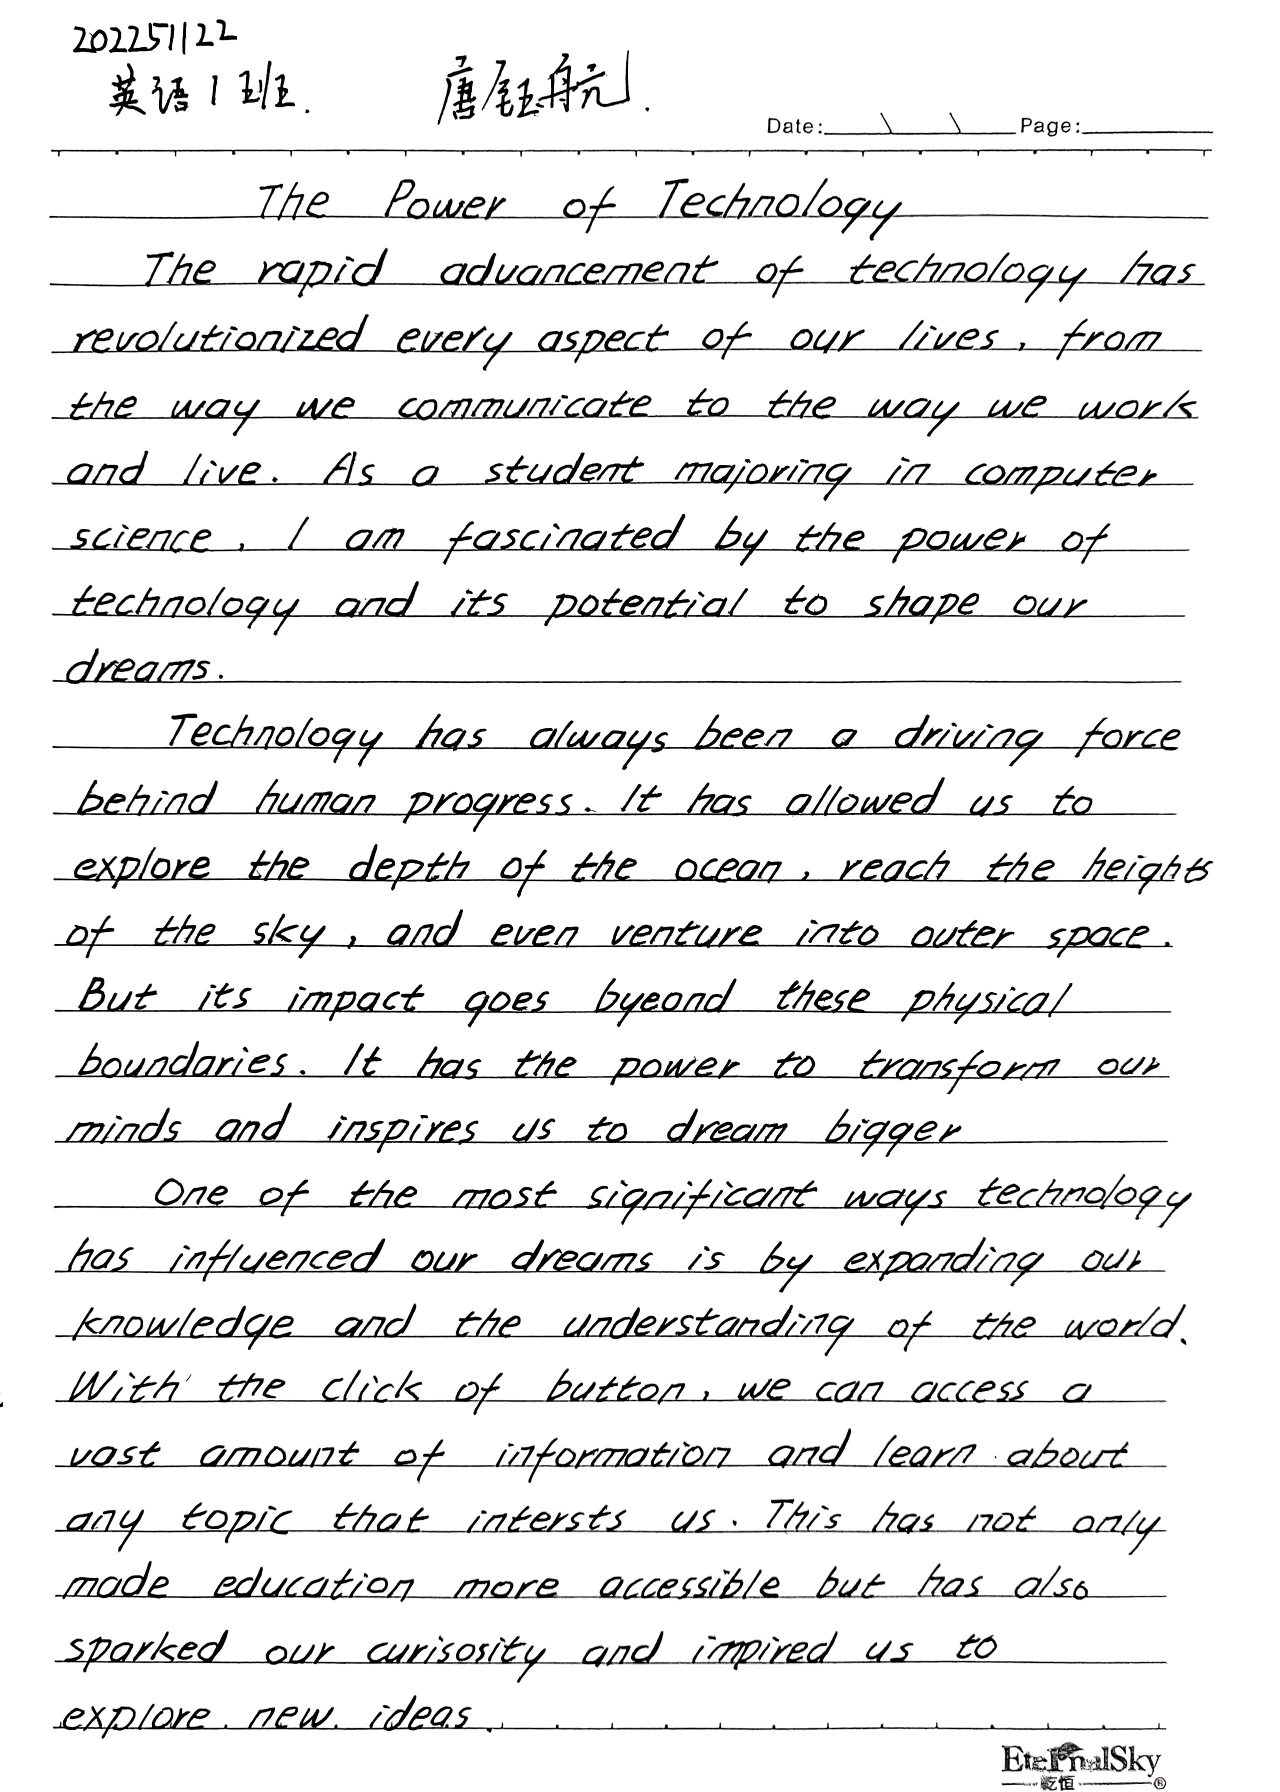 202251122
英语1班. 唐钰航.
Date: \ \ Page:
The Power of Technology
The rapid advancement of technology has
revolutionized every aspect of our lives, from
the way we communicate to the way we work
and live. As a student majoring in computer
science, I am fascinated by the power of
technology and its potential to shape our
dreams.
Technology has always been a driving force
behind human progress. It has allowed us to
explore the depth of the ocean, reach the heights
of the sky, and even venture into outer space.
But its impact goes byeond these physical
boundaries. It has the power to transform our
minds and inspires us to dream bigger
One of the most significant ways technology
has influenced our dreams is by expanding our
knowledge and the understanding of the world.
With the click of button, we can access a
vast amount of information and learn about
any topic that intersts us. This has not only
made education more accessible but has also
sparked our curisosity and impired us to
explore new ideas.
EternalSky
乾恒 ®